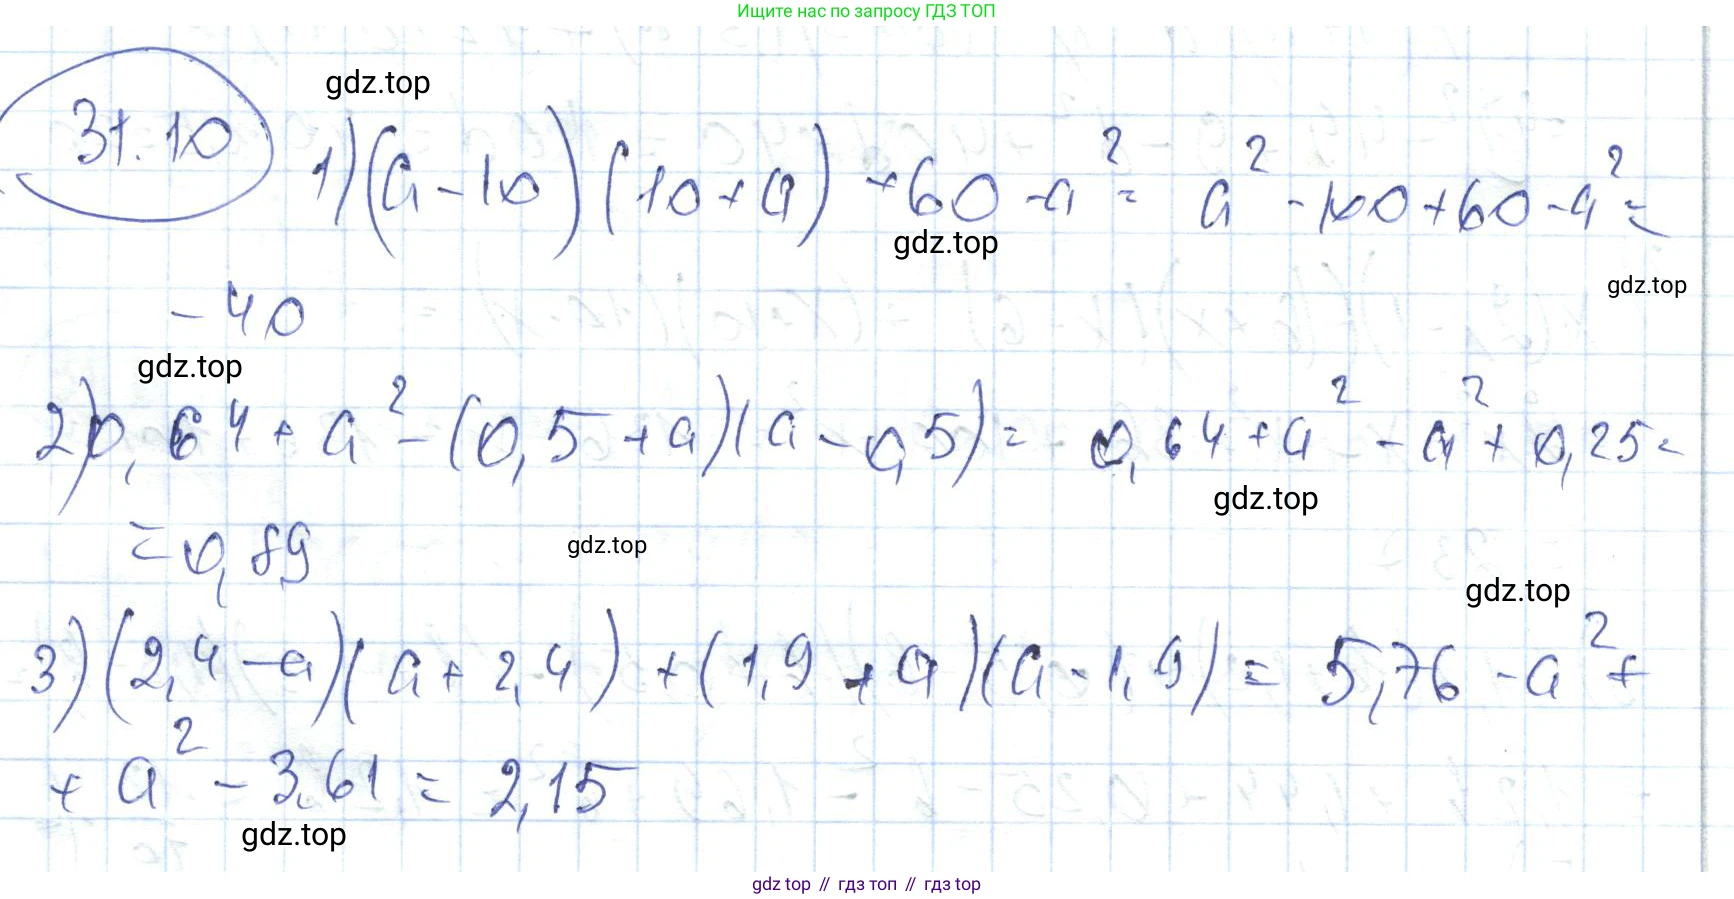 Ищите нас по запросу ГДЗ ТОП
gdz.top
31.10
1) (a-10)(10+a)+60-a²= a²-100+60-a²=
gdz.top
gdz.top
-40
gdz.top
2) 0,64+a²-(0,5+a)(a-0,5)= 0,64+a²-a²+0,25=
gdz.top
=0,89
gdz.top
gdz.top
3) (2,4-a)(a+2,4)+(1,9+a)(a-1,9)= 5,76-a²+
+a²-3,61=2,15
gdz.top
gdz top // гдз топ // гдз top